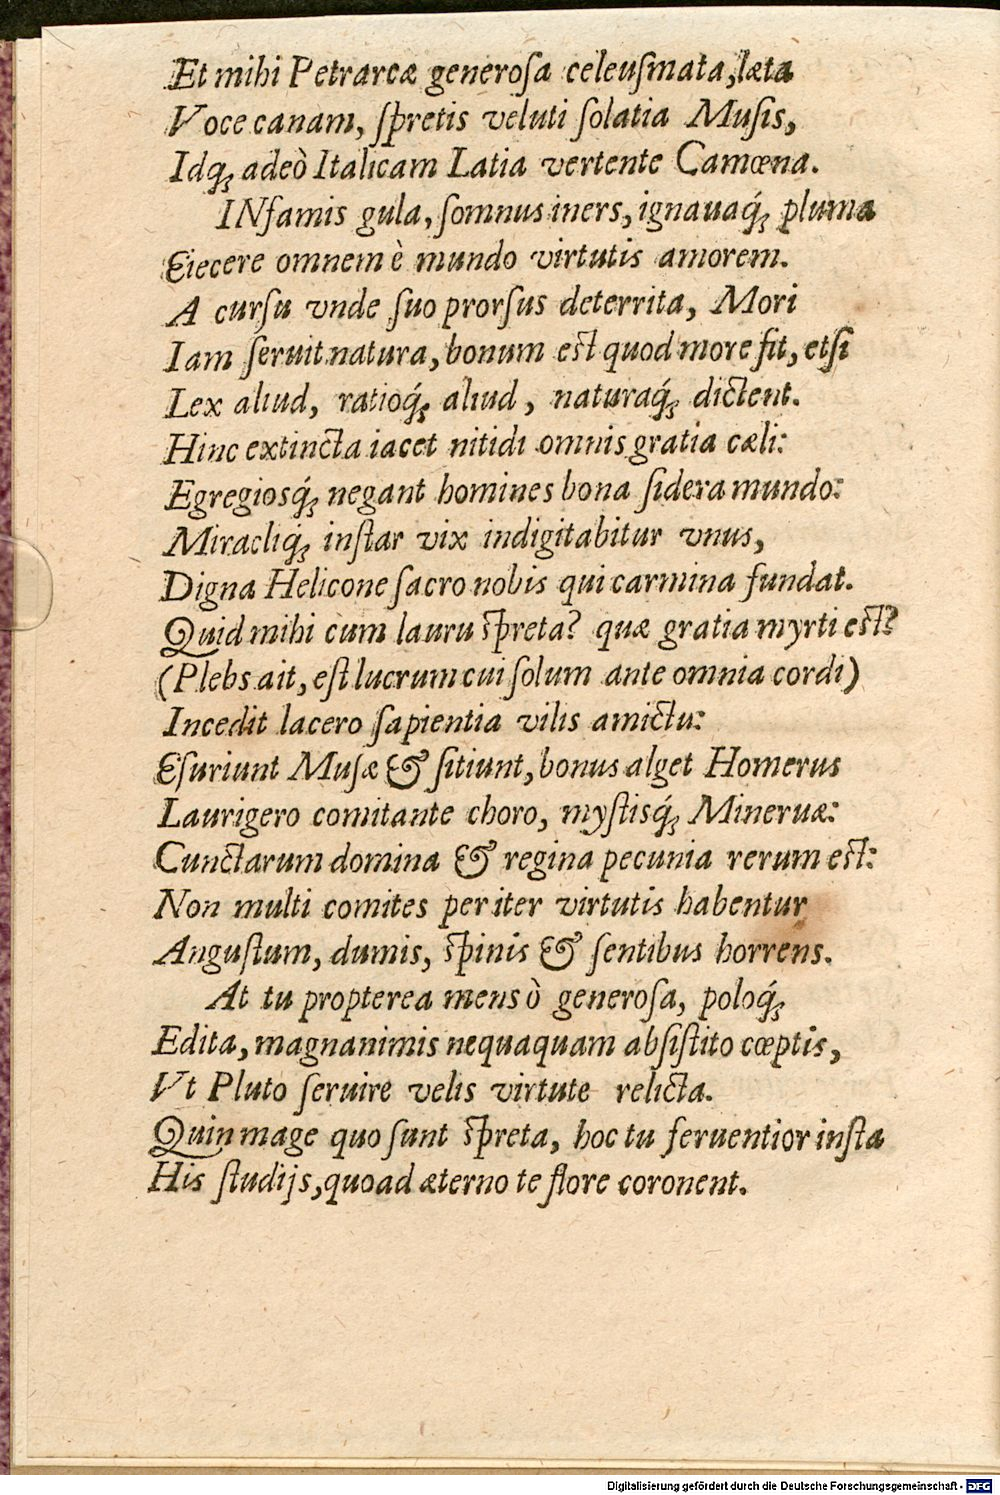 Et mihi Petrarcæ generosa celeusmata, læta
Voce canam, spretis veluti solatia Musis,
Idq́; adeò Italicam Latia vertente Camœna.
INfamis gula, somnus iners, ignauaq́; pluma
Eiecere omnem è mundo virtutis amorem.
A cursu vnde suo prorsus deterrita, Mori
Iam seruit natura, bonum est quod more fit, etsi
Lex aliud, ratioq́; aliud, naturaq́; dictent.
Hinc extincta iacet nitidi omnis gratia cæli:
Egregiosq́; negant homines bona sidera mundo:
Miracliq́; instar vix indigitabitur vnus,
Digna Helicone sacro nobis qui carmina fundat.
Quid mihi cum lauru spreta? quæ gratia myrti est?
(Plebs ait, est lucrum cui solum ante omnia cordi)
Incedit lacero sapientia vilis amictu:
Esuriunt Musæ & sitiunt, bonus alget Homerus
Laurigero comitante choro, mystisq́; Mineruæ:
Cunctarum domina & regina pecunia rerum est:
Non multi comites per iter virtutis habentur
Angustum, dumis, spinis & sentibus horrens.
At tu propterea mens ò generosa, poloq́;
Edita, magnanimis nequaquam absistito cœptis,
Vt Pluto seruire velis virtute relicta.
Quin mage quo sunt spreta, hoc tu feruentior insta
His studijs, quo ad æterno te flore coronent.
Digitalisierung gefördert durch die Deutsche Forschungsgemeinschaft - DFG